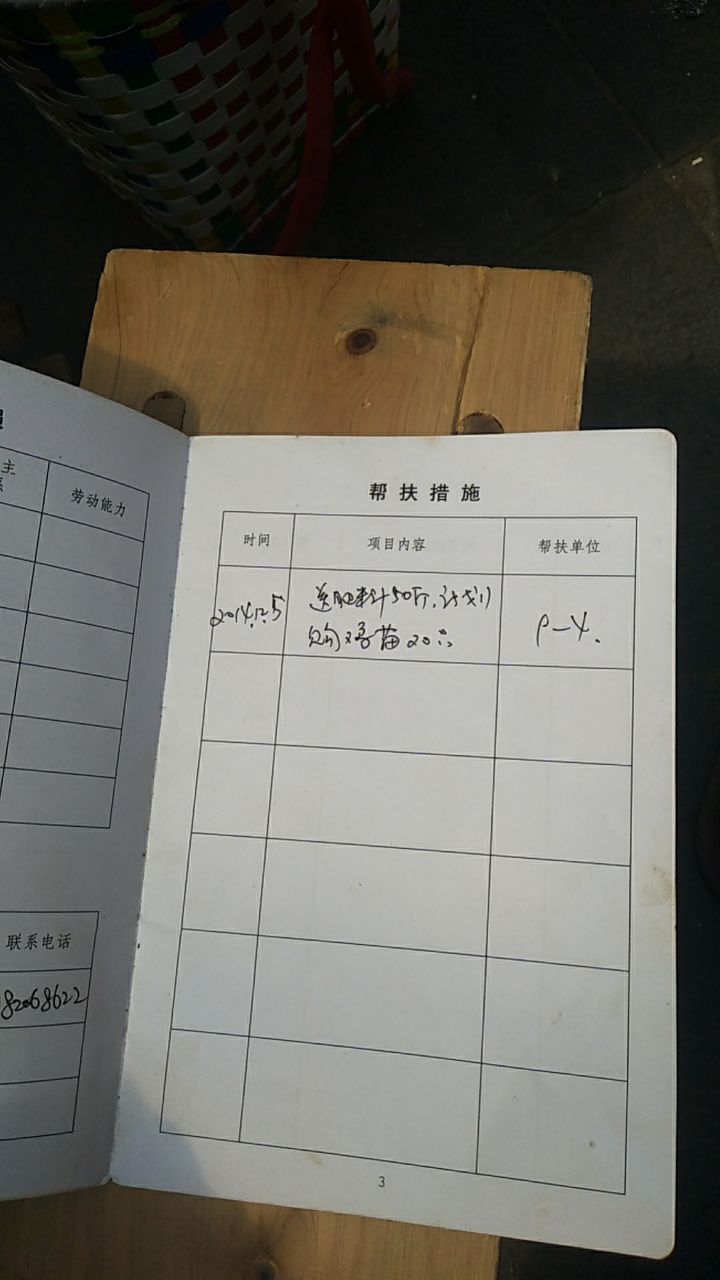 主
系
劳动能力
联系电话
82068622
帮扶措施
时间
项目内容
帮扶单位
2014.12.5
送肥料50斤.计划
购鸡苗20
3